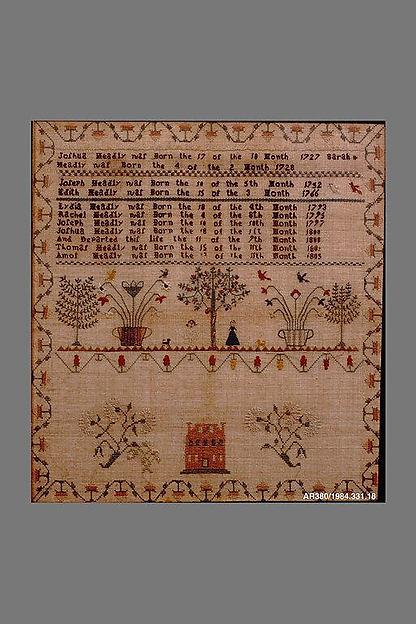 Joſhua Headly waſ Born the 17 of the 10 Month 1727 Sarah
Headly waſ Born the 4 of the 2 Month 1728
Joſeph Headly waſ Born the 10 of the 5th Month 1752
Edith Headly waſ Born the 15 of the 3 Month 1766
Lydia Headly waſ Born the 18 of the 4th Month 1793
Rachel Headly waſ Born the 4 of the 8th Month 1795
Joſeph Headly waſ Born the 10 of the 10th Month 1797
Joſhua Headly waſ Born the 18 of the Month
And Departed thiſ life the 11 of the 7th Month
Thomaſ Headly waſ Born the 15 of the Month
Amoſ Headly waſ Born the of the Month 1805
AR380/1984.331.18